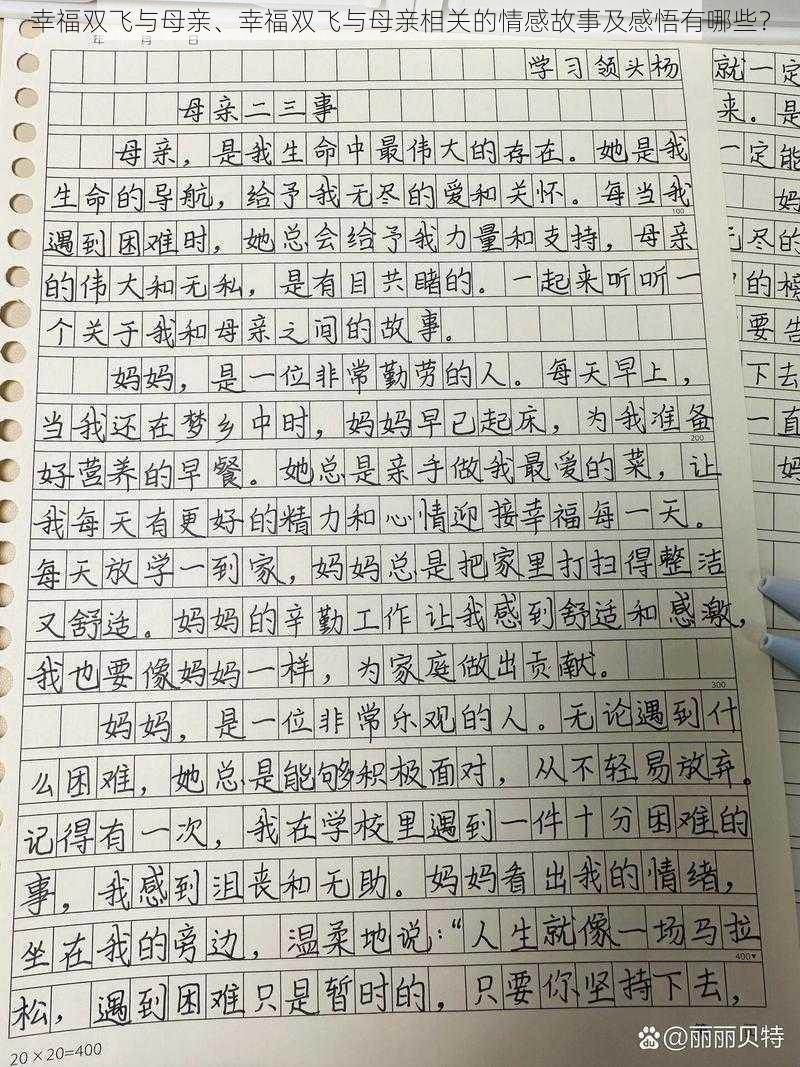 幸福双飞与母亲、幸福双飞与母亲相关的情感故事及感悟有哪些？
年 月 日
学习领头杨
母亲二三事
母亲，是我生命中最伟大的存在。她是我
生命的导航，给予我无尽的爱和关怀。每当我
100
遇到困难时，她总会给予我力量和支持，母亲
的伟大和无私，是有目共睹的。一起来听听一
个关于我和母亲之间的故事。
妈妈，是一位非常勤劳的人。每天早上，
当我还在梦乡中时，妈妈早已起床，为我准备
200
好营养的早餐。她总是亲手做我最爱的菜，让
我每天有更好的精力和心情迎接幸福每一天。
每天放学一到家，妈妈总是把家里打扫得整洁
又舒适。妈妈的辛勤工作让我感到舒适和感激，
我也要像妈妈一样，为家庭做出贡献。
300
妈妈，是一位非常乐观的人。无论遇到什
么困难，她总是能够积极面对，从不轻易放弃。
记得有一次，我在学校里遇到一件十分困难的
事，我感到沮丧和无助。妈妈看出我的情绪，
坐在我的旁边，温柔地说：“人生就像一场马拉
400
松，遇到困难只是暂时的，只要你坚持下去，
20×20=400
就一定
来。是
一定能
妈
无尽的
的榜
要告
下去
一直
妈
Bai百度 @丽丽贝特